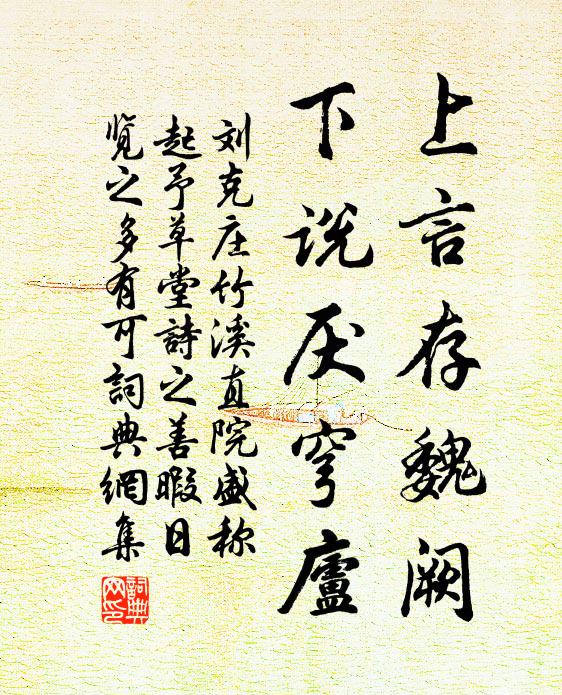 上言存魏阙
下说厌穹廬
刘克庄竹溪直院盛称
起予草堂詩之善暇日
览之多有可詞典網集
詞典网印